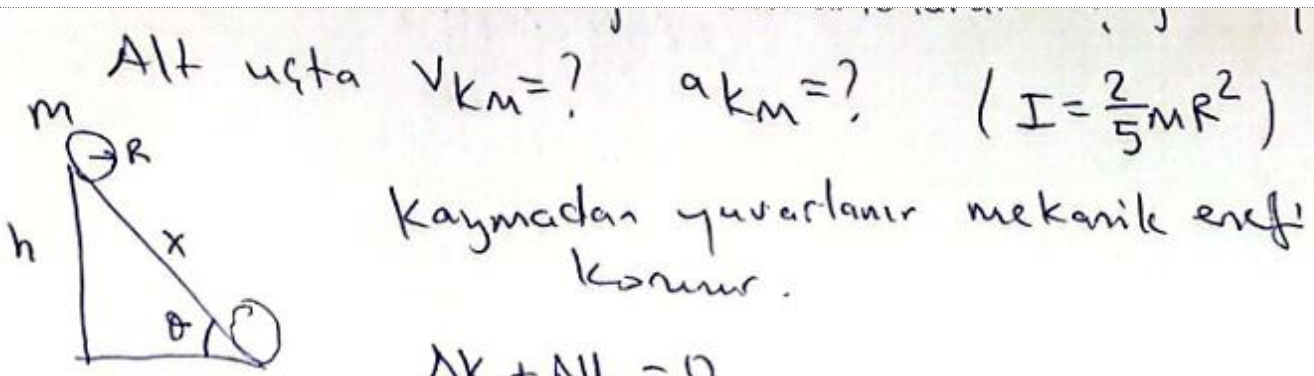 Alt uçta V_KM=? a_KM=? (I=2/5 MR²)
m
R
h
x
θ
Kaymadan yuvarlanır mekanik enerji
korunur.
ΔK + ΔU = 0